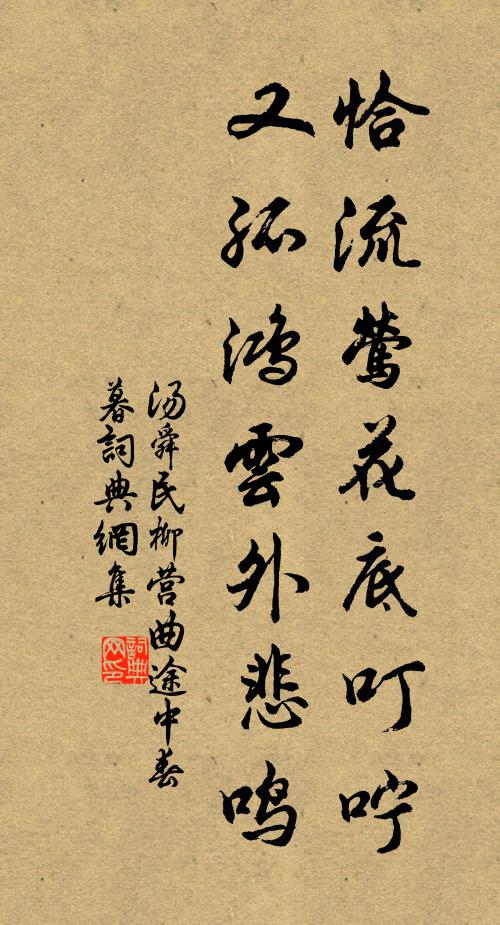 恰流莺花底叮咛
又孤鸿雲外悲鸣
汤舜民柳营曲途中春
暮詞典網集
詞典网印